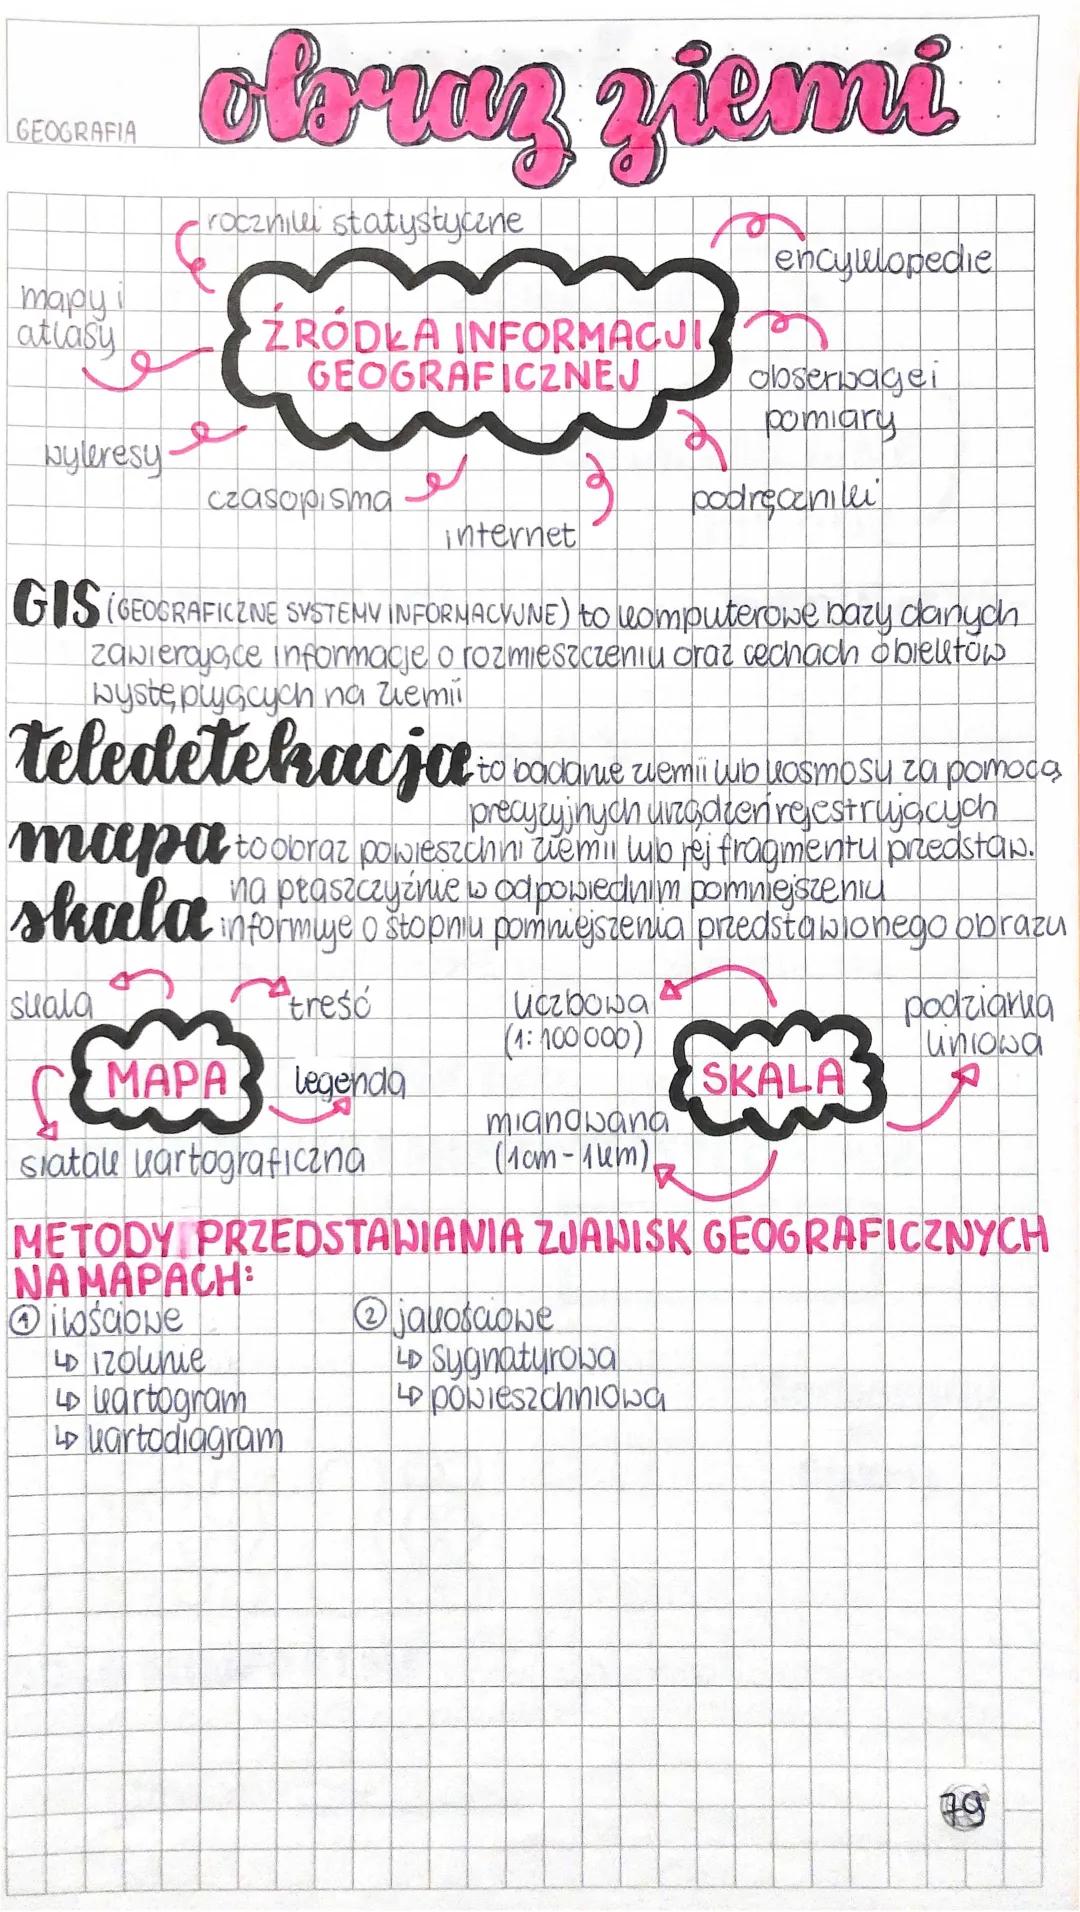 GEOGRAFIA
obraz ziemi
roczniki statystyczne
encyklopedie
mapy i
atlasy
ŹRÓDŁA INFORMACJI
GEOGRAFICZNEJ
obserwacje i
pomiary
wykresy
czasopisma
podręczniki
internet
GIS (GEOGRAFICZNE SYSTEMY INFORMACYJNE) to komputerowe bazy danych
zawierające informacje o rozmieszczeniu oraz cechach obiektów
występujących na ziemii
teledetekacja to badanie ziemii lub kosmosu za pomocą
precyzyjnych urządzeń rejestrujących
mapa to obraz powieszchni ziemii lub jej fragmentu przedstaw.
na płaszczyźnie w odpowiednim pomniejszeniu
skala informuje o stopniu pomniejszenia przedstawionego obrazu
skala
treść
liczbowa
(1:100000)
podziałka
liniowa
MAPA
legenda
SKALA
mianowana
(1cm - 1km)
siatak kartograficzna
METODY PRZEDSTAWIANIA ZJAWISK GEOGRAFICZNYCH
NA MAPACH:
① ilościowe
② jakościowe
↳ izolinie
↳ sygnaturowa
↳ kartogram
↳ powieszchniowa
↳ kartodiagram
79